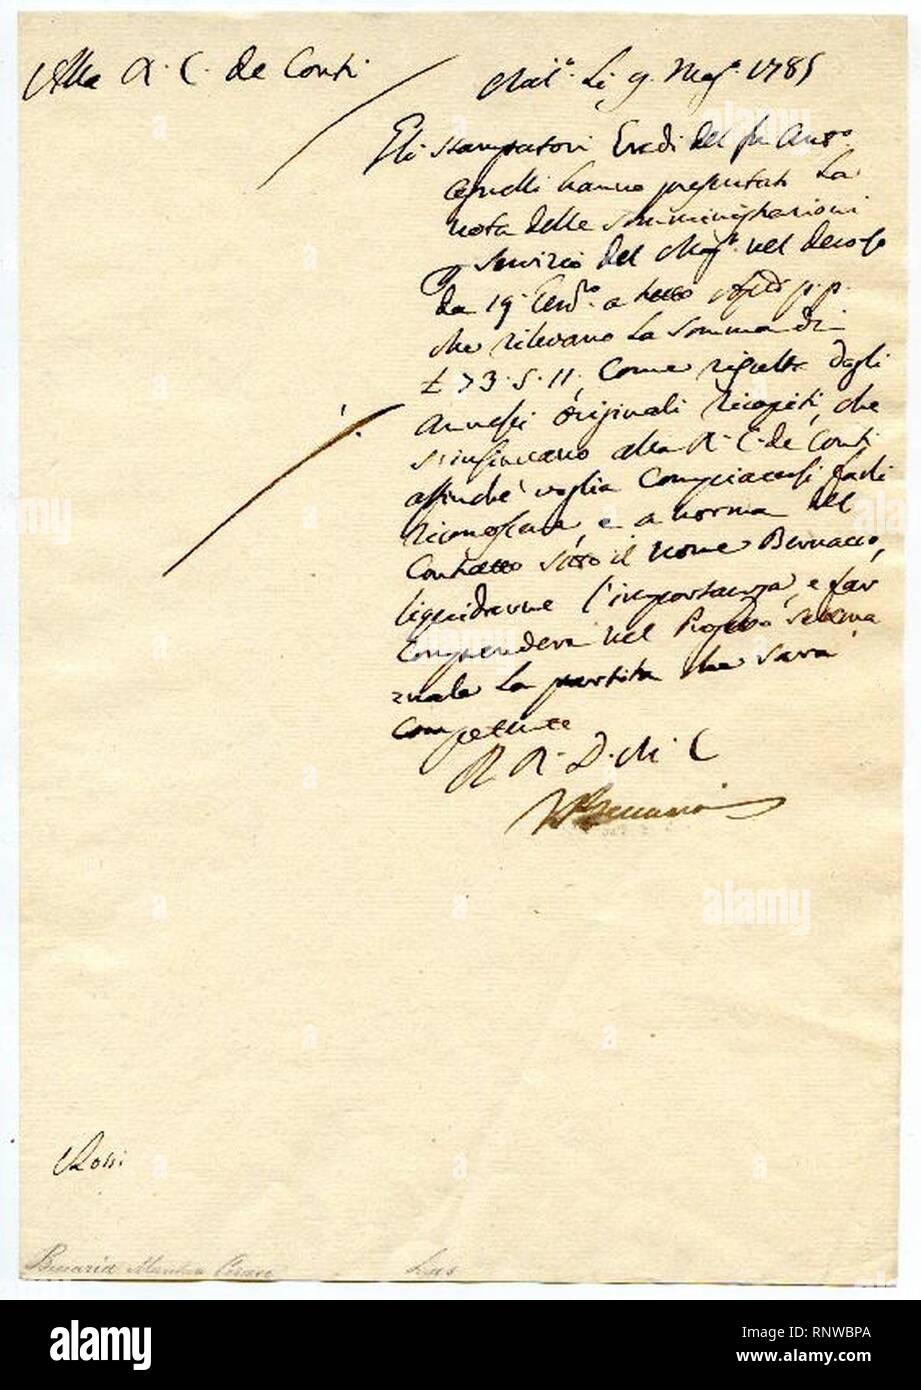 Alla R. C. de Conti
Mil.º Li 9. Mag.º 1785
Gli stampatori Eredi del fu Ant.º
Agnelli hanno presentati La
nota delle Somministrazioni
servizio del Mag.º nel decorso
da 19. a tutto p.p.
che rilevano La Somma di
£ 73. 5. 11. Come risulta dagli
Annessi originali Ricapiti, che
si rimettono alla R. C. de Conti
affinchè voglia Compiacersi farli
riconoscere, e a norma del
Contratto sotto il nome Bernacco,
liquidarne l'importanza, e far
Comprendere nel settima
nale La partita che sarà
Competente
R. R. D. M. C
Beccaria
Rossi
Beccaria Marchese Cesare
alamy
Image ID: RNWBPA
www.alamy.com